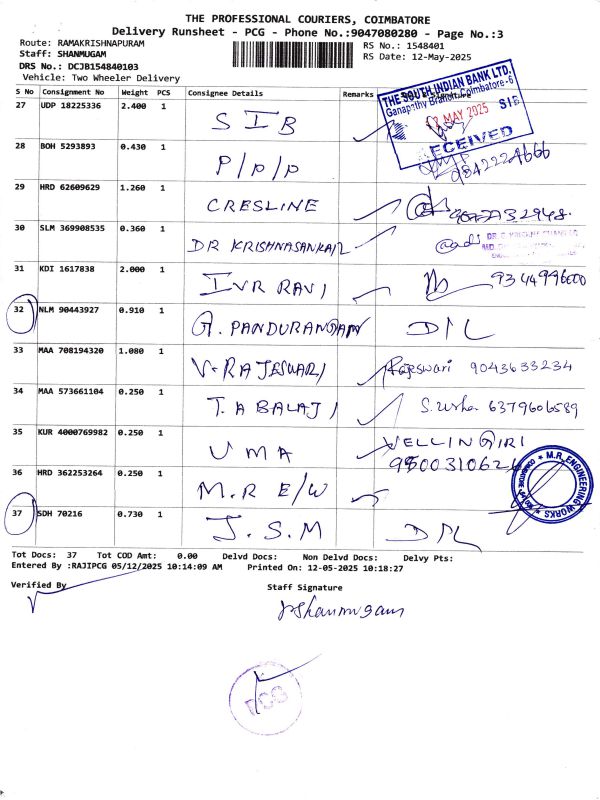 THE PROFESSIONAL COURIERS, COIMBATORE
Delivery Runsheet - PCG - Phone No.:9047080280 - Page No.:3
Route: RAMAKRISHNAPURAM
Staff: SHANMUGAM
DRS No.: DCJB154840103
Vehicle: Two Wheeler Delivery
RS No.: 1548401
RS Date: 12-May-2025
S No Consignment No Weight PCS Consignee Details Remarks
THE SOUTH INDIAN BANK LTD.
Ganapathy Branch, Coimbatore - 6
MAY 2025 SIB
RECEIVED
27 UDP 18225336 2.400 1 SIB
28 BOH 5293893 0.430 1 P/P/P
29 HRD 62609629 1.260 1 CRESLINE
30 SLM 369908535 0.360 1 DR KRISHNASANKAR
31 KDI 1617838 2.000 1 IVR RAVI
32 NLM 90443927 0.910 1 G. PANDURANGAN DIL
33 MAA 708194320 1.080 1 V. RAJESWARI Rajeswari 9043633234
34 MAA 573661104 0.250 1 T. A BALAJI S. Usha 6379606589
35 KUR 4000769982 0.250 1 UMA VELLINGIRI
36 HRD 362253264 0.250 1 M.R E/W
M.R. ENGINEERING WORKS
37 SDH 70216 0.730 1 J.S.M DIL
Tot Docs: 37 Tot COD Amt: 0.00 Delvd Docs: Non Delvd Docs: Delvy Pts:
Entered By :RAJIPCG 05/12/2025 10:14:09 AM Printed On: 12-05-2025 10:18:27
Verified By
Staff Signature
Shanmugam
PCG